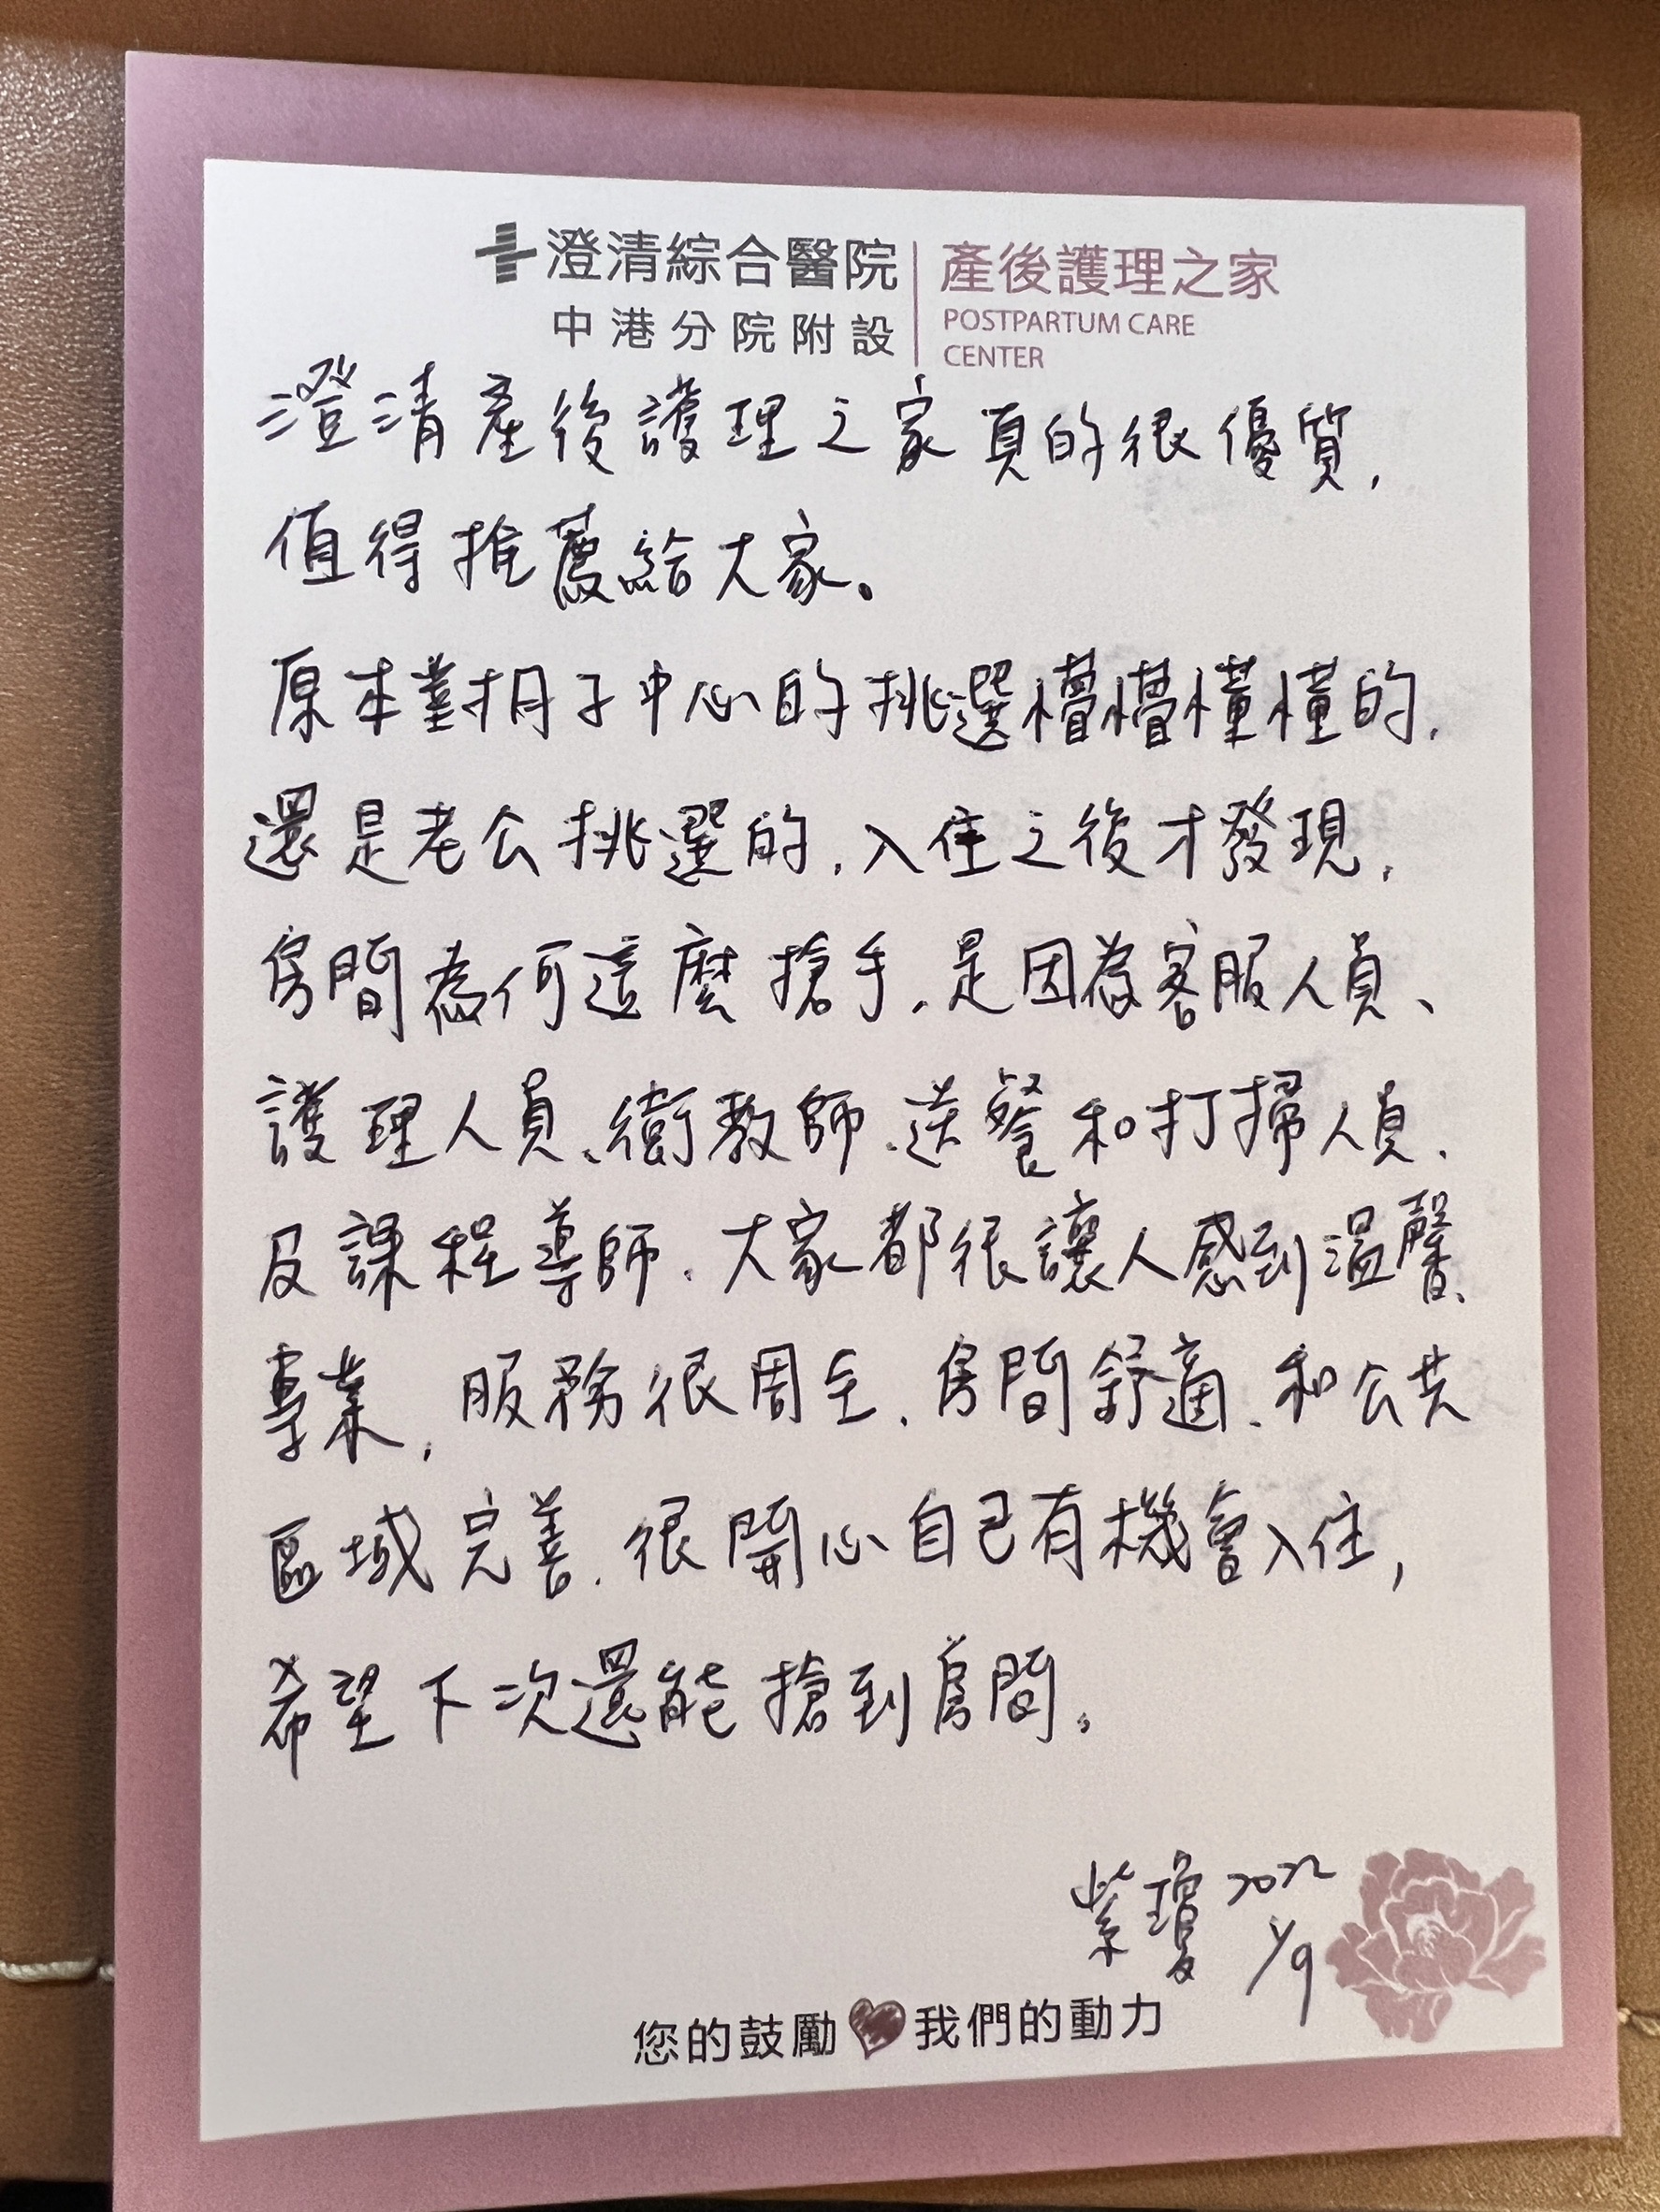 澄清綜合醫院
中港分院附設
產後護理之家
POSTPARTUM CARE
CENTER
澄清產後護理之家真的很優質,
值得推薦給大家。
原本對月子中心的挑選懵懵懂懂的,
還是老公挑選的,入住之後才發現,
房間為何這麼搶手,是因為客服人員、
護理人員、衛教師、送餐和打掃人員、
及課程導師,大家都很讓人感到溫馨、
專業,服務很周全、房間舒適、和公共
區域完善,很開心自己有機會入住,
希望下次還能搶到房間。
紫瓊 2022
1/9
您的鼓勵 我們的動力